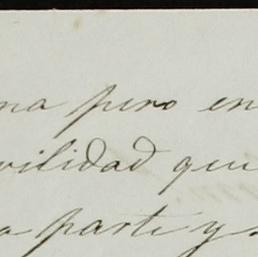 na pero en
vilidad que
a parte y